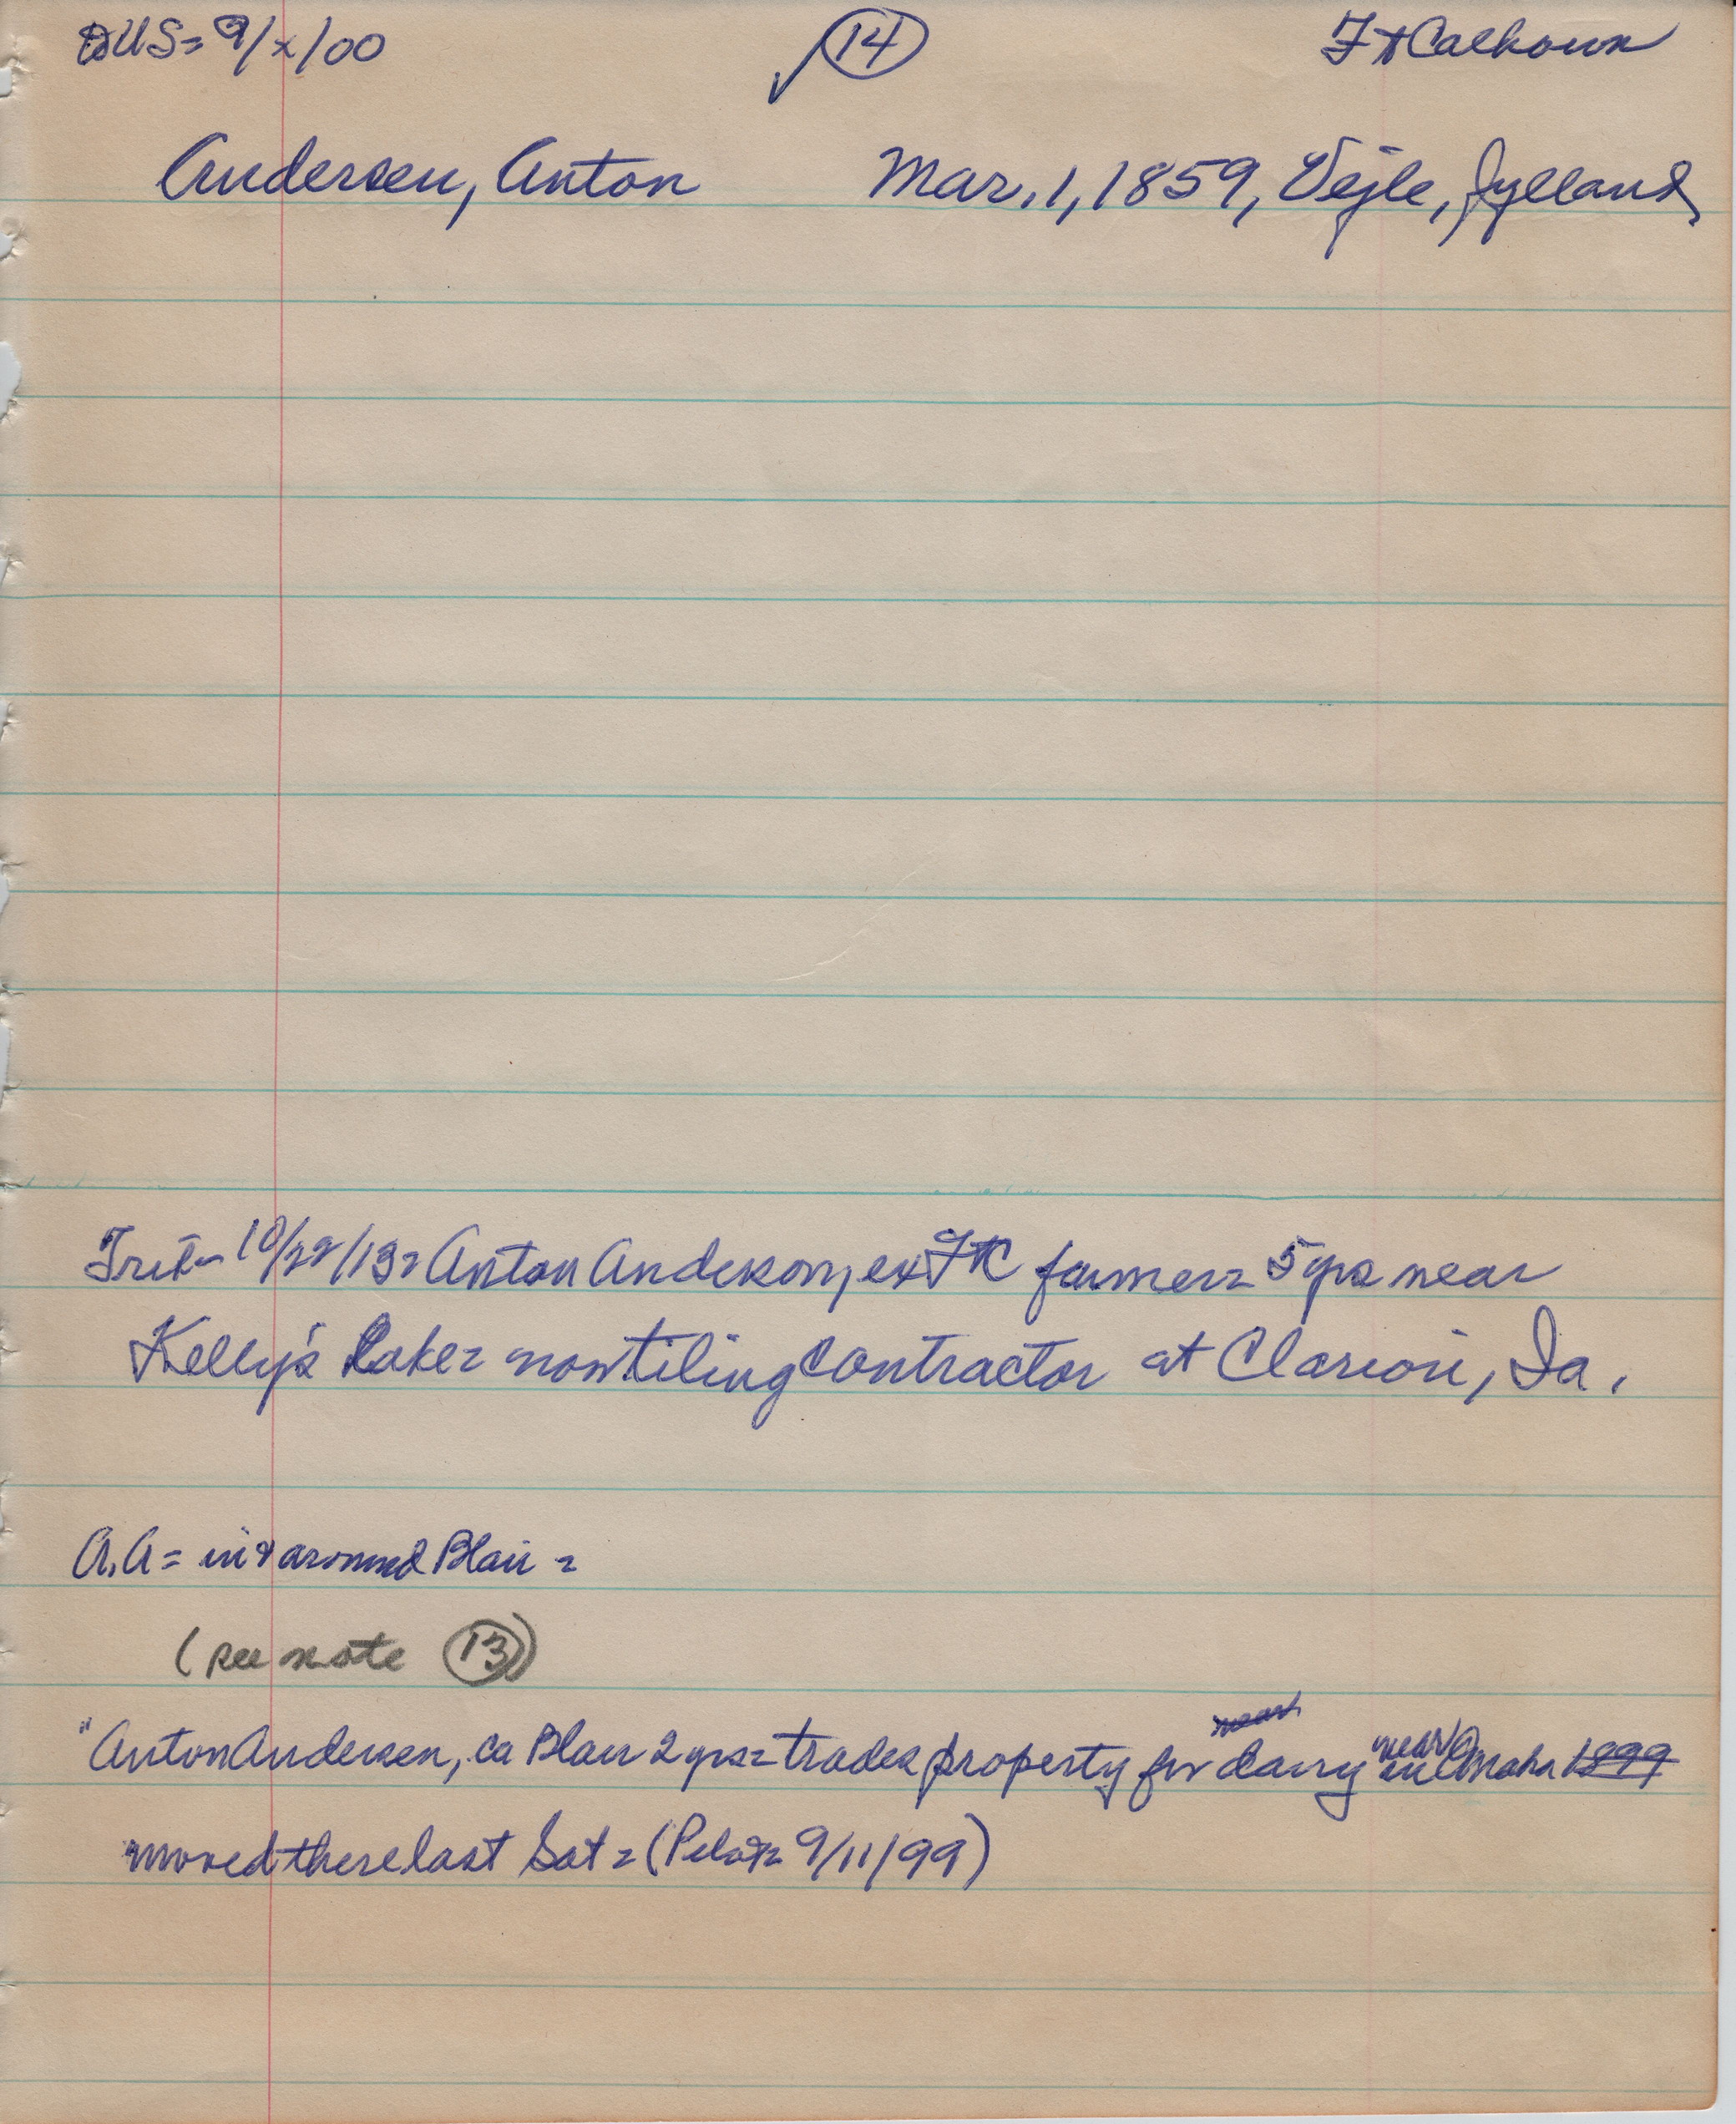 DUS = 9/x/00 ✓ 14 Ft Calhoun
Andersen, Anton Mar. 1, 1859, Vejle, Jylland
Trib- 10/22/13 = Anton Anderson, ex FtC farmer = 5 yrs near
Kelly's Lake = now tiling contractor at Clarion, Ia.
A.A = in & around Blair =
(see note 13)
"Anton Andersen, ca Blair 2 yrs = trades property for dairy near Omaha 1899
moved there last Sat = (Pilot = 9/11/99)